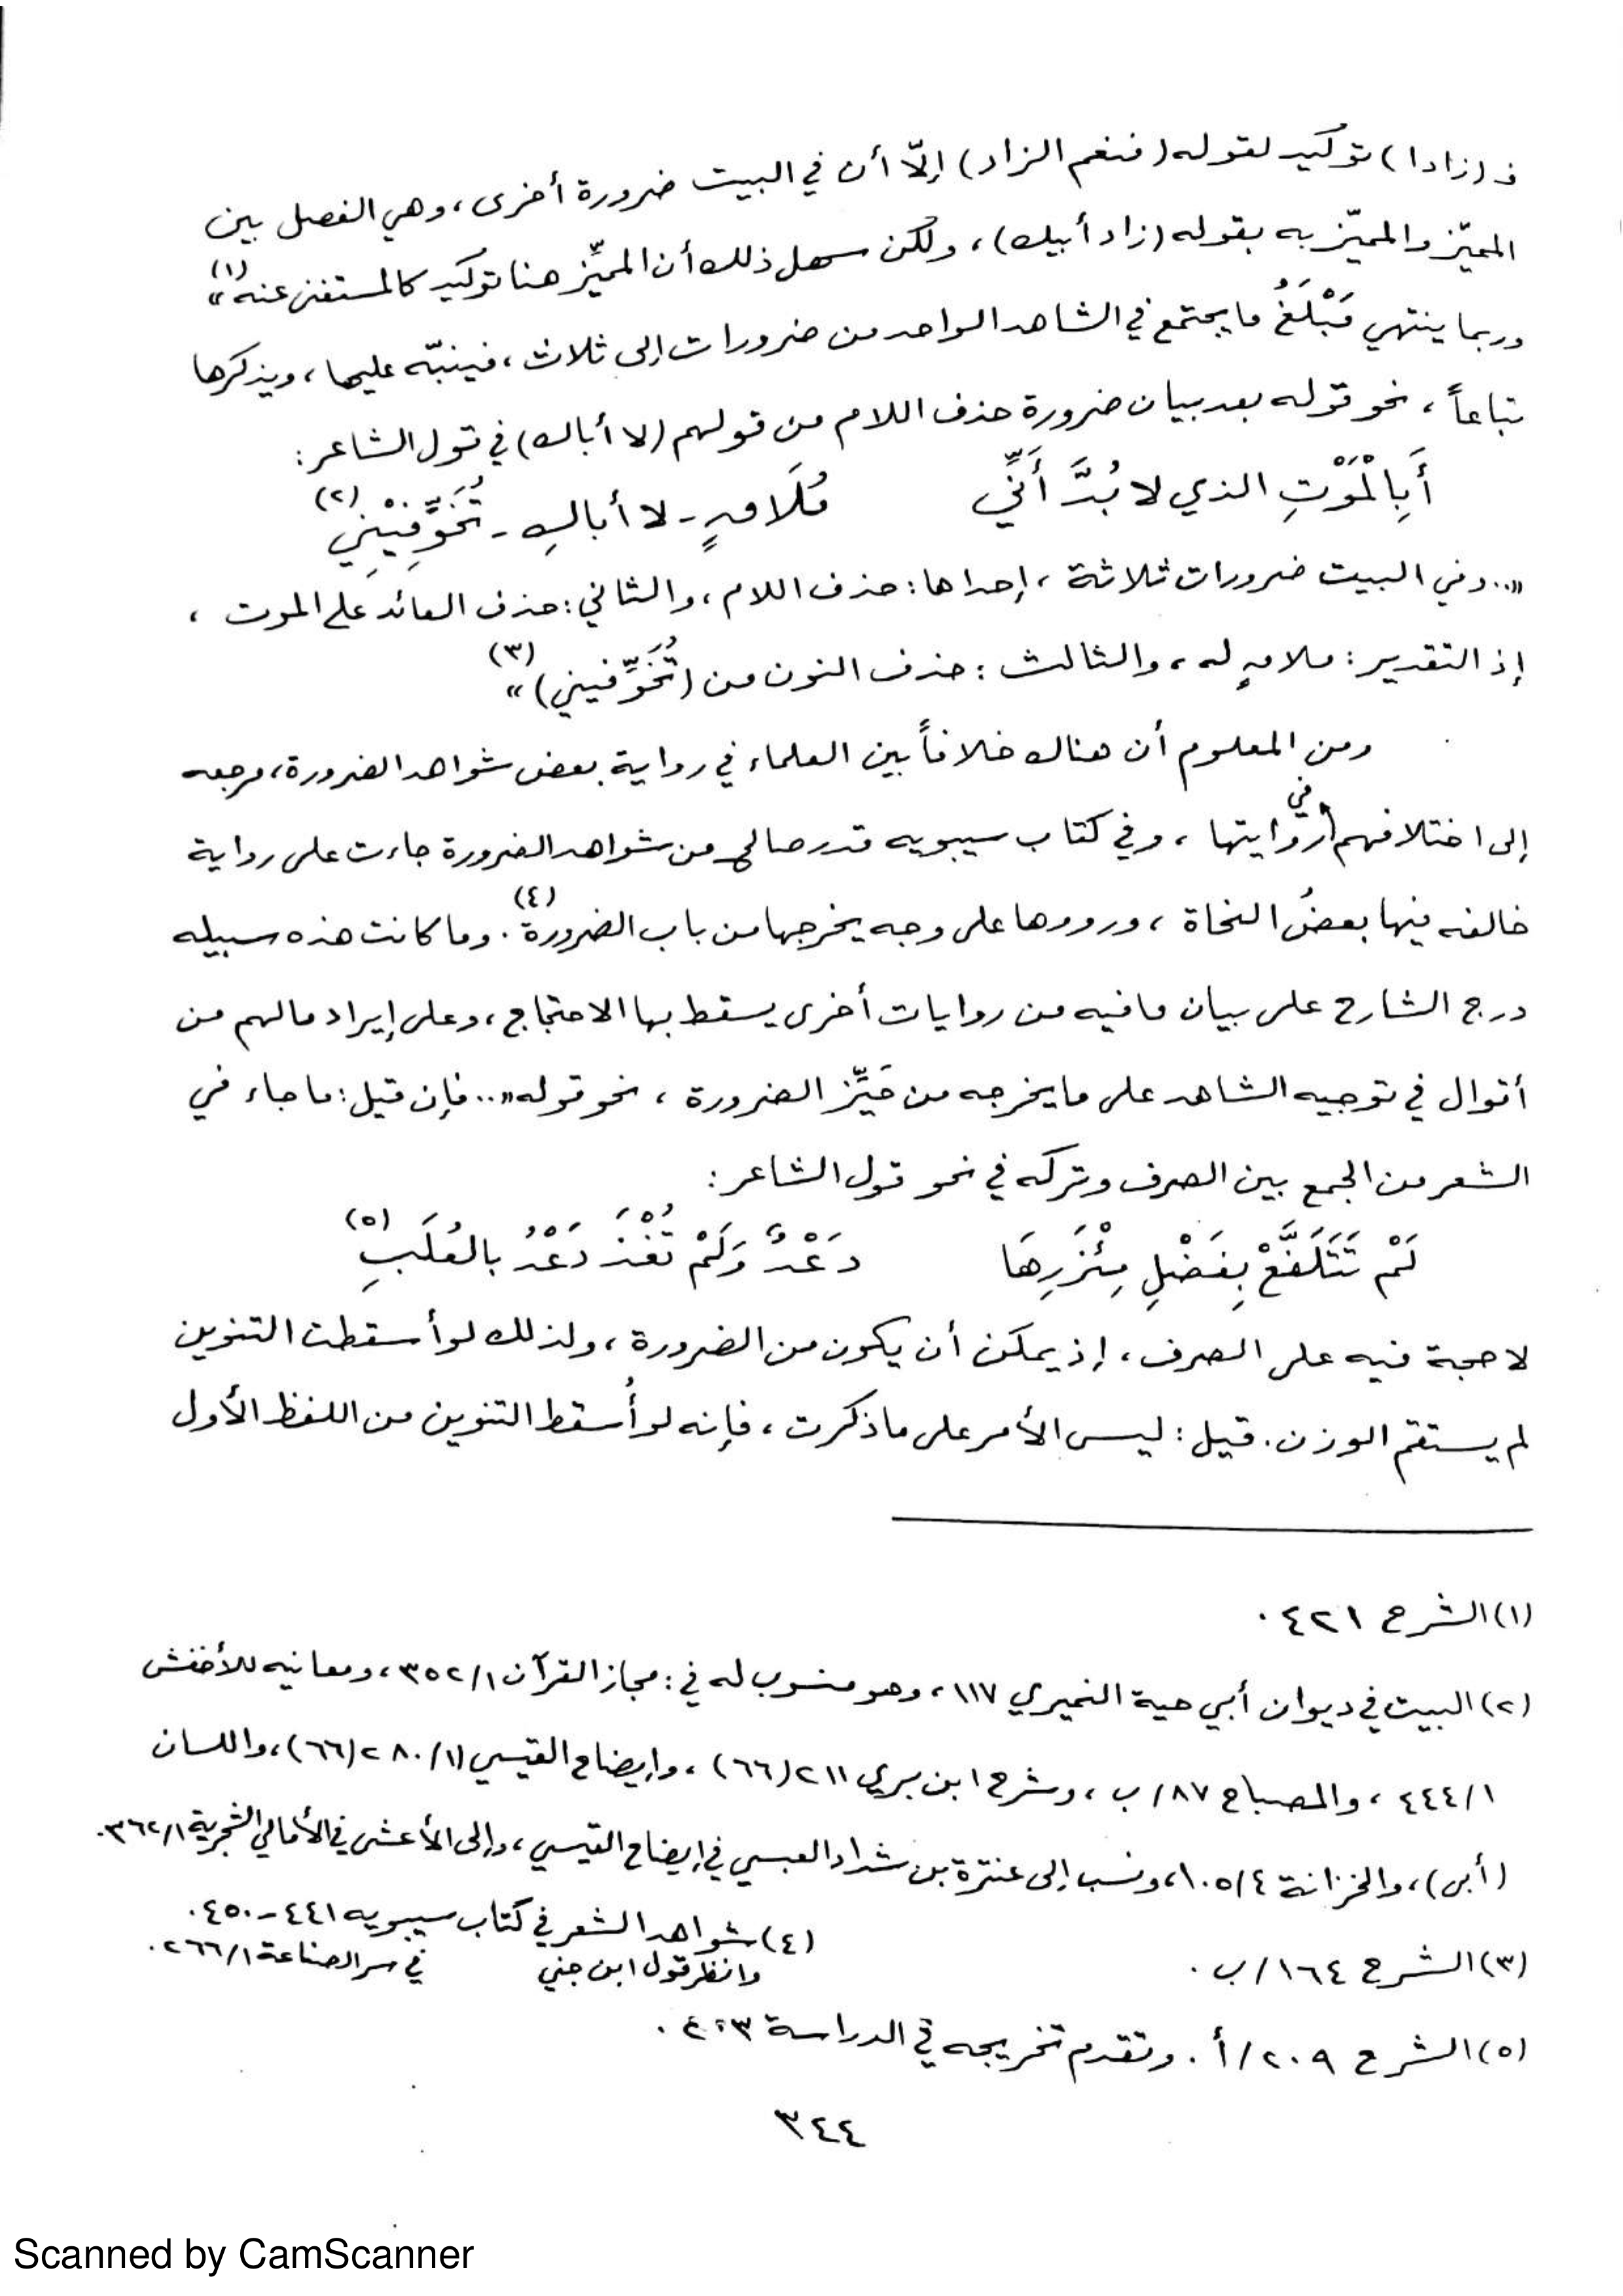 فـ(زادا) توكيد لقوله (فنعم الزاد) إلّا أن في البيت ضرورة أخرى، وهي الفصل بين
المميّز والمميّز به بقوله (زاد أبيك)، ولكن سهل ذلك أن المميّز هنا توكيد كالمستغنى عنه» (١)
وربما ينتهي مَبْلَغُ ما يجتمع في الشاهد الواحد من ضرورات إلى ثلاث، فينبّه عليها، ويذكرها
تباعاً، نحو قوله بعد بيان ضرورة حذف اللام من قولهم (لا أباك) في قول الشاعر:
أَبِالْمَوْتِ الذي لا بُدَّ أَنِّي مُلَاقٍ - لا أباكِ - تُخَوِّفِيْنِي (٢)
«.. وفي البيت ضرورات ثلاثة، إحداها: حذف اللام، والثاني: حذف العائد على الموت،
إذ التقدير: ملاقٍ له، والثالث: حذف النون من (تُخَوِّفيني)» (٣)
ومن المعلوم أن هناك خلافاً بين العلماء في رواية بعض شواهد الضرورة، مرجعه
إلى اختلافهم في روايتها، وفي كتاب سيبويه قدر صالح من شواهد الضرورة جاءت على رواية
خالفه فيها بعضُ النحاة، ورووها على وجه يخرجها من باب الضرورة (٤). وما كانت هذه سبيله
درج الشارح على بيان ما فيه من روايات أخرى يسقط بها الاحتجاج، وعلى إيراد ما لهم من
أقوال في توجيه الشاهد على ما يخرجه من حَيِّز الضرورة، نحو قوله «.. فإن قيل: ما جاء في
الشعر من الجمع بين الصرف وتركه في نحو قول الشاعر:
لَمْ تَتَلَفَّعْ بِفَضْلِ مِئْزَرِهَا دَعْدٌ وَلَمْ تُغْذَ دَعْدُ بالعُلَبِ (٥)
لا حجة فيه على الصرف، إذ يمكن أن يكون من الضرورة، ولذلك لو أسقطت التنوين
لم يستقم الوزن. قيل: ليس الأمر على ما ذكرت، فإنه لو أُسقط التنوين من اللفظ الأول
(١) الشرح ٤٢١.
(٢) البيت في ديوان أبي حية النميري ١١٧، وهو منسوب له في: مجاز القرآن ٣٥٢/١، ومعانيه للأخفش
٤٤٤/١، والمصباح ٨٧/ب، وشرح ابن بري ٢١١ (٦٦)، وإيضاح القيسي ٢٨٠/١ (٦٦)، واللسان
(أبى)، والخزانة ١٠٥/٤، ونسب إلى عنترة بن شداد العبسي في إيضاح القيسي، وإلى الأعشى في الأمالي الشجرية ٣٦٢/١.
(٣) الشرح ١٦٤/ب.
(٤) شواهد الشعر في كتاب سيبويه ٤٤١-٤٥٠.
وانظر قول ابن جني في سر الصناعة ٢٦٦/١.
(٥) الشرح ٢٠٩/أ. وتقدم تخريجه في الدراسة
٣٤٤
Scanned by CamScanner